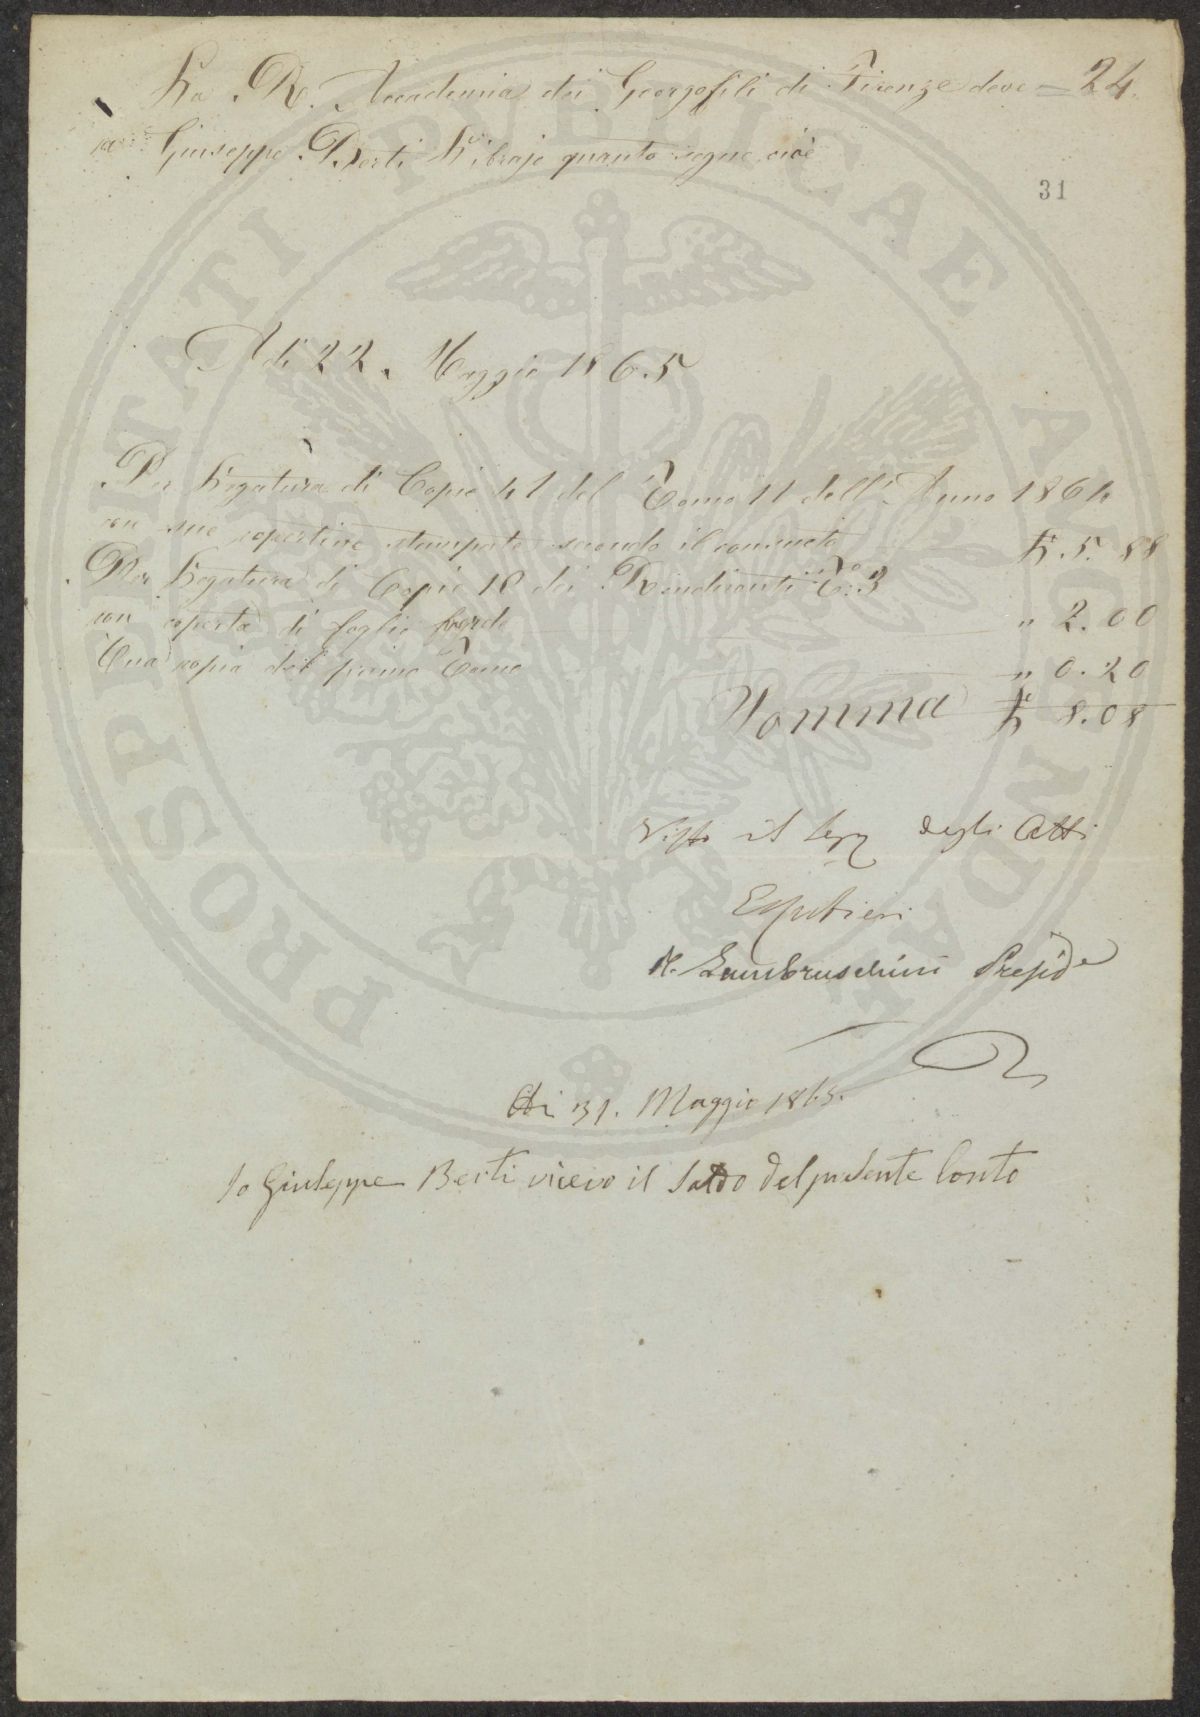 La R. Accademia dei Georgofili di Firenze deve = 24.
a Giuseppe Berti Librajo quanto segue cioè
31
Adi 22. Maggio 1865
Per Legatura di Copie 41 del Tomo 11 dell'Anno 1864
con sue copertine stampate secondo il consueto L. 5. 88
Per Legatura di Copie 18 dei Rendiconti T.o 3
con coperta di foglio " 2.00
Una copia del primo Tomo " 0.20
Somma L 8.08
Visto il Seg degli Atti
R. Lambruschini Preside
Adi 31. Maggio 1865.
Io Giuseppe Berti ricevo il Saldo del presente Conto
PROSPERITATI PUBLICAE AUGENDAE